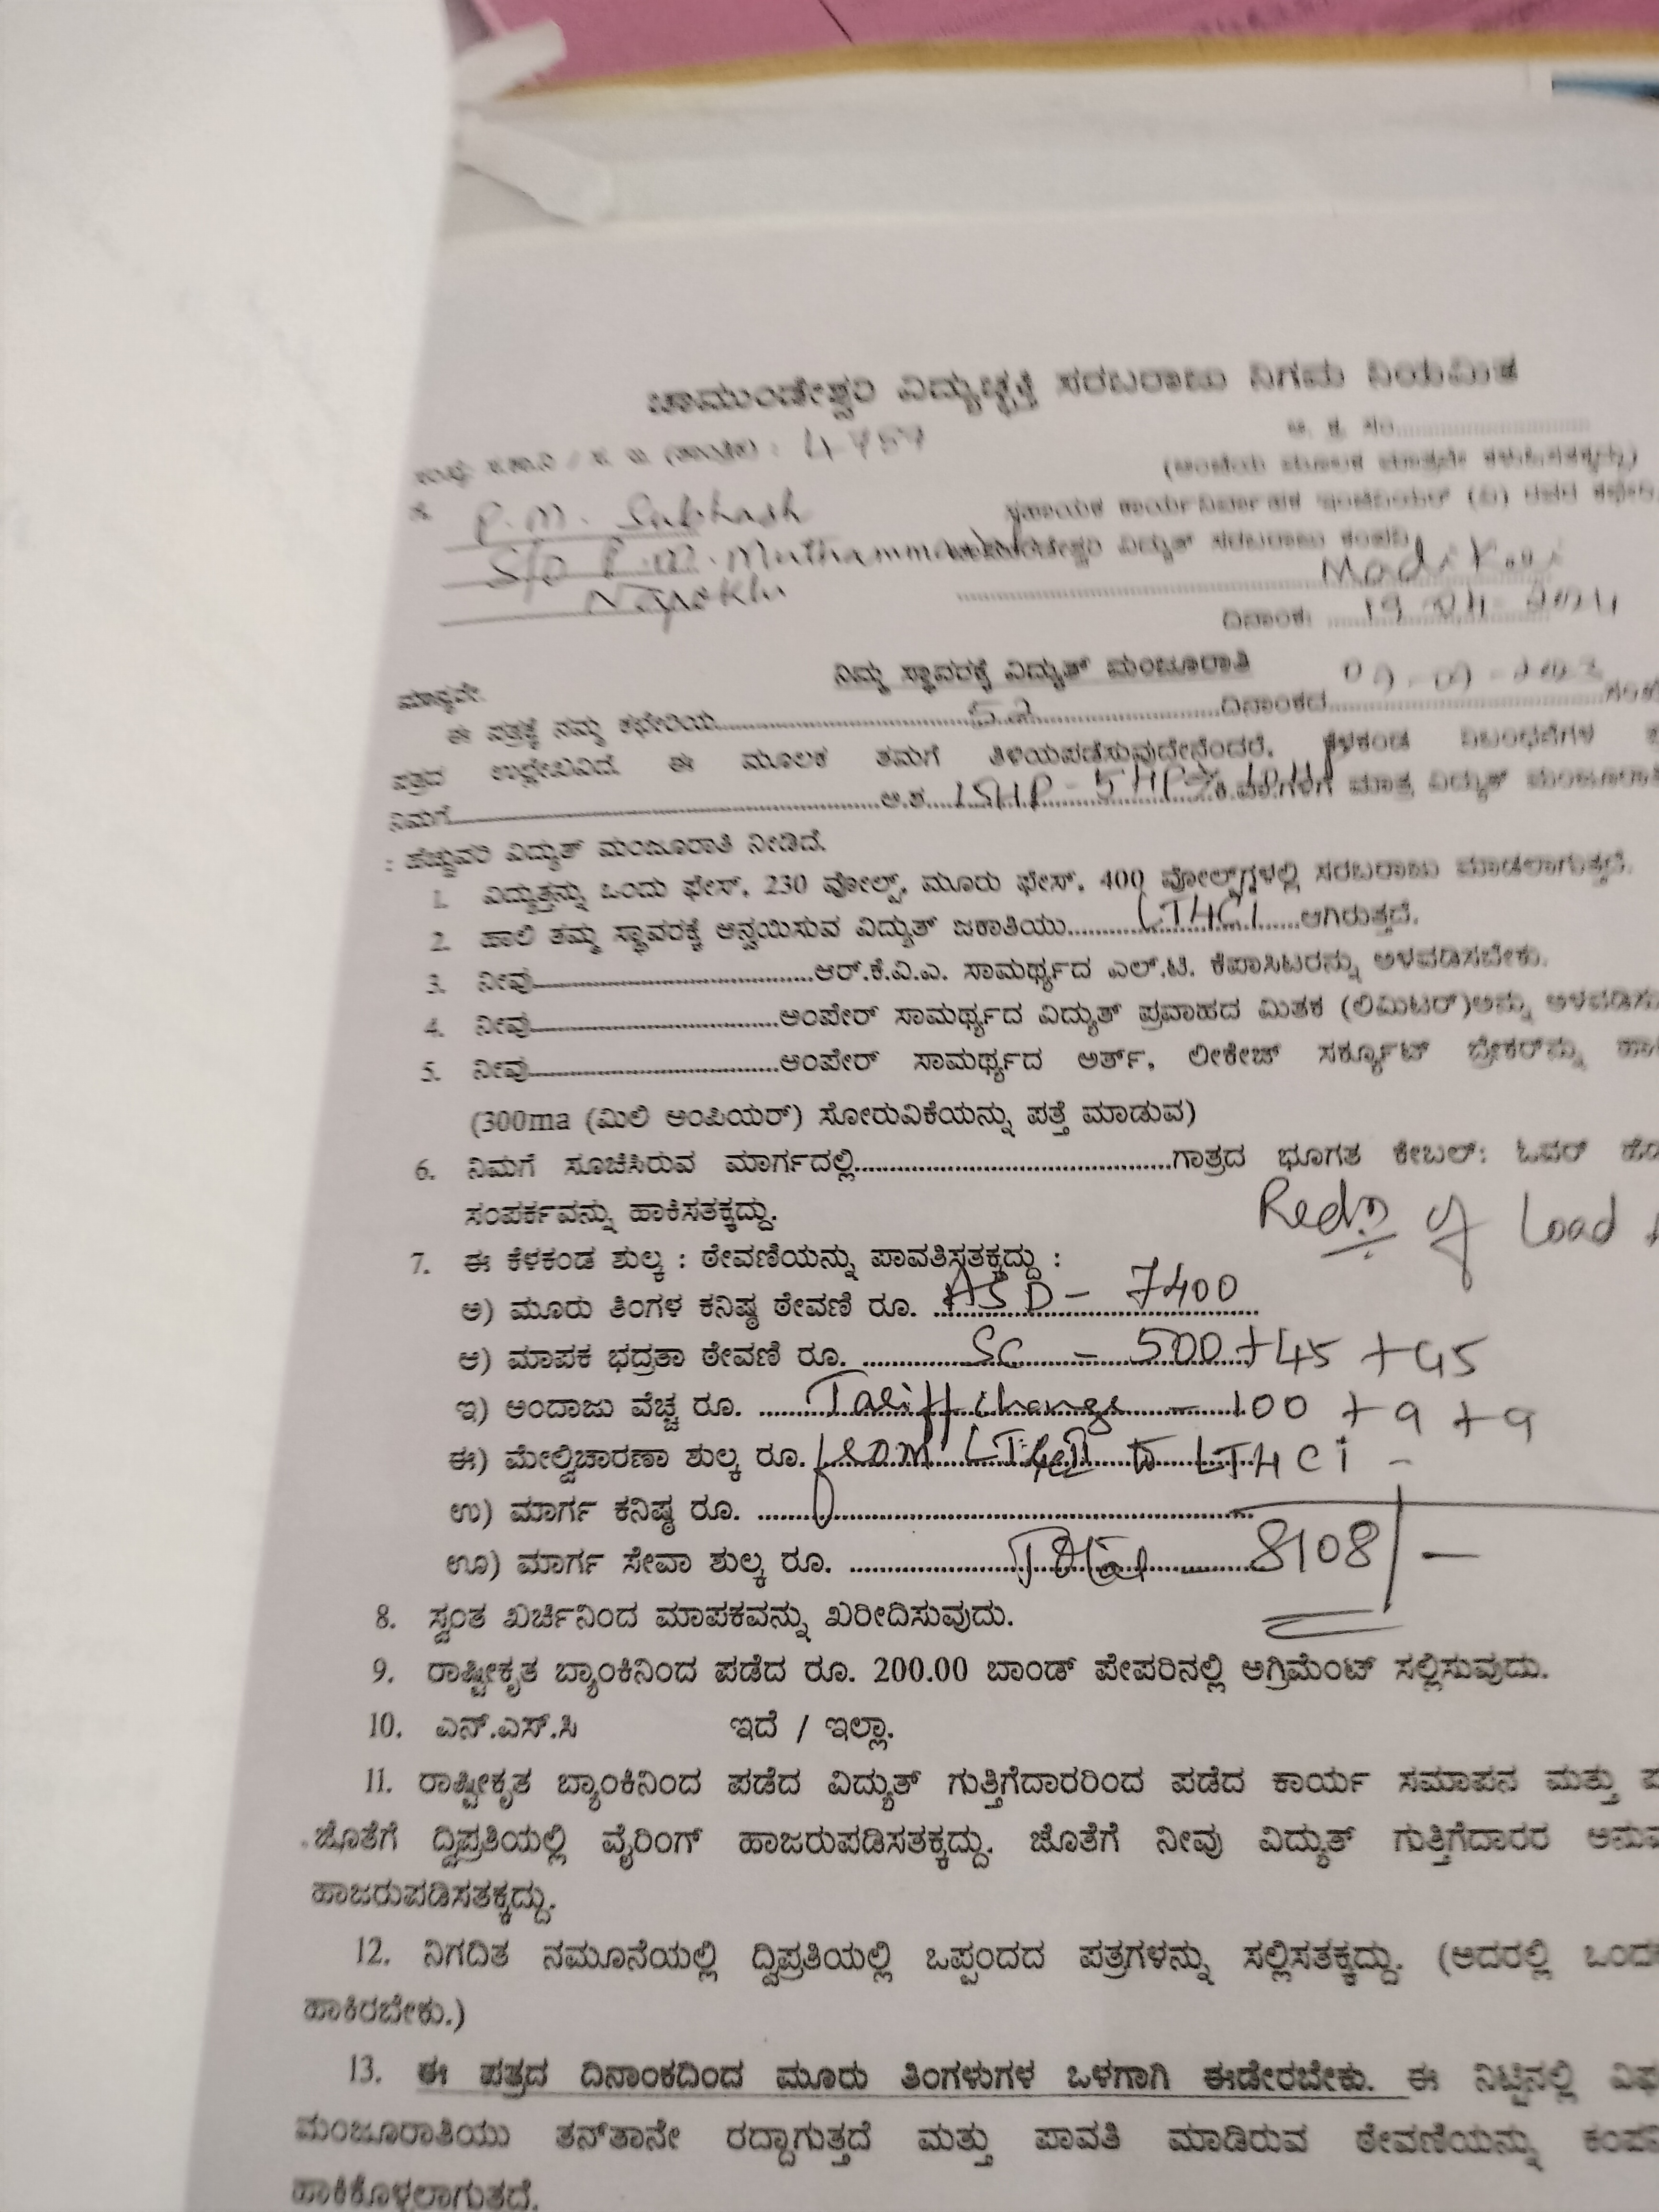 ಚಾಮುಂಡೇಶ್ವರಿ ವಿದ್ಯುಚ್ಛಕ್ತಿ ಸರಬರಾಜು ನಿಗಮ ನಿಯಮಿತ
4757
(ಅಂಚೆಯ ಮೂಲಕ ಮಾತ್ರವೇ ಕಳುಹಿಸತಕ್ಕದ್ದು)
P.M. Subhash
ಸಹಾಯಕ ಕಾರ್ಯನಿರ್ವಾಹಕ ಇಂಜಿನಿಯರ್ (ವಿ) ರವರ ಕಛೇರಿ,
S/o P.M. Muthamma
ವಿದ್ಯುತ್ ಸರಬರಾಜು ಕಂಪನಿ,
Napoklu
Madikeri
ದಿನಾಂಕ: 19-04-2024
ನಿಮ್ಮ ಸ್ಥಾವರಕ್ಕೆ ವಿದ್ಯುತ್ ಮಂಜೂರಾತಿ
ಮಾನ್ಯರೇ.
ಈ ಪತ್ರಕ್ಕೆ ನಮ್ಮ ಕಛೇರಿಯ..........52..........ದಿನಾಂಕದ
ಪತ್ರದ ಉಲ್ಲೇಖವಿದೆ. ಈ ಮೂಲಕ ತಮಗೆ ತಿಳಿಯಪಡಿಸುವುದೇನೆಂದರೆ, ಕೆಳಕಂಡ ನಿಬಂಧನೆಗಳ
ನಿಮಗೆ..........ಅ.ಶ....15HP - 5HP = 10HP ಕಿ.ವಾ.ಗಳಿಗೆ ಮಾತ್ರ ವಿದ್ಯುತ್ ಮಂಜೂರಾತಿ
: ಹೆಚ್ಚುವರಿ ವಿದ್ಯುತ್ ಮಂಜೂರಾತಿ ನೀಡಿದೆ.
1. ವಿದ್ಯುತ್ತನ್ನು ಒಂದು ಫೇಸ್, 230 ವೋಲ್ಟ್, ಮೂರು ಫೇಸ್, 400 ವೋಲ್ಟ್‌ಗಳಲ್ಲಿ ಸರಬರಾಜು ಮಾಡಲಾಗುತ್ತದೆ.
2. ಹಾಲಿ ತಮ್ಮ ಸ್ಥಾವರಕ್ಕೆ ಅನ್ವಯಿಸುವ ವಿದ್ಯುತ್ ಜಕಾತಿಯು..........LT4Ci......ಆಗಿರುತ್ತದೆ.
3. ನೀವು..........ಆರ್.ಕೆ.ವಿ.ಎ. ಸಾಮರ್ಥ್ಯದ ಎಲ್.ಟಿ. ಕೆಪಾಸಿಟರನ್ನು ಅಳವಡಿಸಬೇಕು.
4. ನೀವು..........ಅಂಪೇರ್ ಸಾಮರ್ಥ್ಯದ ವಿದ್ಯುತ್ ಪ್ರವಾಹದ ಮಿತಕ (ಲಿಮಿಟರ್)ಅನ್ನು
5. ನೀವು..........ಅಂಪೇರ್ ಸಾಮರ್ಥ್ಯದ ಅರ್ತ್, ಲೀಕೇಜ್ ಸರ್ಕ್ಯೂಟ್ ಬ್ರೇಕರ್‌ನ್ನು
(300ma (ಮಿಲಿ ಅಂಪಿಯರ್) ಸೋರುವಿಕೆಯನ್ನು ಪತ್ತೆ ಮಾಡುವ)
6. ನಿಮಗೆ ಸೂಚಿಸಿರುವ ಮಾರ್ಗದಲ್ಲಿ..........ಗಾತ್ರದ ಭೂಗತ ಕೇಬಲ್: ಓವರ್
ಸಂಪರ್ಕವನ್ನು ಹಾಕಿಸತಕ್ಕದ್ದು.
Redn of Load
7. ಈ ಕೆಳಕಂಡ ಶುಲ್ಕ : ಠೇವಣಿಯನ್ನು ಪಾವತಿಸತಕ್ಕದ್ದು :
ಅ) ಮೂರು ತಿಂಗಳ ಕನಿಷ್ಠ ಠೇವಣಿ ರೂ. ASD - 7400
ಆ) ಮಾಪಕ ಭದ್ರತಾ ಠೇವಣಿ ರೂ. SC - 500 + 45 + 45
ಇ) ಅಂದಾಜು ವೆಚ್ಚ ರೂ. Tariff change - 100 + 9 + 9
ಈ) ಮೇಲ್ವಿಚಾರಣಾ ಶುಲ್ಕ ರೂ. from to LT4Ci -
ಉ) ಮಾರ್ಗ ಕನಿಷ್ಠ ರೂ. ..........
ಊ) ಮಾರ್ಗ ಸೇವಾ ಶುಲ್ಕ ರೂ. Total - 8108/-
8. ಸ್ವಂತ ಖರ್ಚಿನಿಂದ ಮಾಪಕವನ್ನು ಖರೀದಿಸುವುದು.
9. ರಾಷ್ಟ್ರೀಕೃತ ಬ್ಯಾಂಕಿನಿಂದ ಪಡೆದ ರೂ. 200.00 ಬಾಂಡ್ ಪೇಪರಿನಲ್ಲಿ ಅಗ್ರಿಮೆಂಟ್ ಸಲ್ಲಿಸುವುದು.
10. ಎನ್.ಎಸ್.ಸಿ ಇದೆ / ಇಲ್ಲಾ.
11. ರಾಷ್ಟ್ರೀಕೃತ ಬ್ಯಾಂಕಿನಿಂದ ಪಡೆದ ವಿದ್ಯುತ್ ಗುತ್ತಿಗೆದಾರರಿಂದ ಪಡೆದ ಕಾರ್ಯ ಸಮಾಪನ ಮತ್ತು
ಜೊತೆಗೆ ದ್ವಿಪ್ರತಿಯಲ್ಲಿ ವೈರಿಂಗ್ ಹಾಜರುಪಡಿಸತಕ್ಕದ್ದು. ಜೊತೆಗೆ ನೀವು ವಿದ್ಯುತ್ ಗುತ್ತಿಗೆದಾರರ
ಹಾಜರುಪಡಿಸತಕ್ಕದ್ದು.
12. ನಿಗದಿತ ನಮೂನೆಯಲ್ಲಿ ದ್ವಿಪ್ರತಿಯಲ್ಲಿ ಒಪ್ಪಂದದ ಪತ್ರಗಳನ್ನು ಸಲ್ಲಿಸತಕ್ಕದ್ದು. (ಅದರಲ್ಲಿ
ಹಾಕಿರಬೇಕು.)
13. ಈ ಪತ್ರದ ದಿನಾಂಕದಿಂದ ಮೂರು ತಿಂಗಳುಗಳ ಒಳಗಾಗಿ ಈಡೇರಬೇಕು. ಈ ನಿಟ್ಟಿನಲ್ಲಿ
ಮಂಜೂರಾತಿಯು ತನ್‌ತಾನೇ ರದ್ದಾಗುತ್ತದೆ ಮತ್ತು ಪಾವತಿ ಮಾಡಿರುವ ಠೇವಣಿಯನ್ನು
ಹಾಕಿಕೊಳ್ಳಲಾಗುತ್ತದೆ.